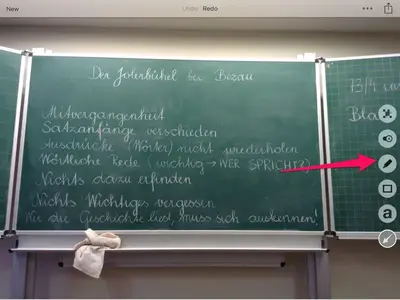 New Undo Redo
Der bei Bezau
Mitvergangenheit
Satzanfänge verschieden
Ausdrücke (Wörter) nicht wiederholen
Wörtliche Rede (wichtig → WER SPRICHT?)
Nichts dazu erfinden
Nichts Wichtiges vergessen
Wer die Geschichte liest, muss sich auskennen!
Bla
a